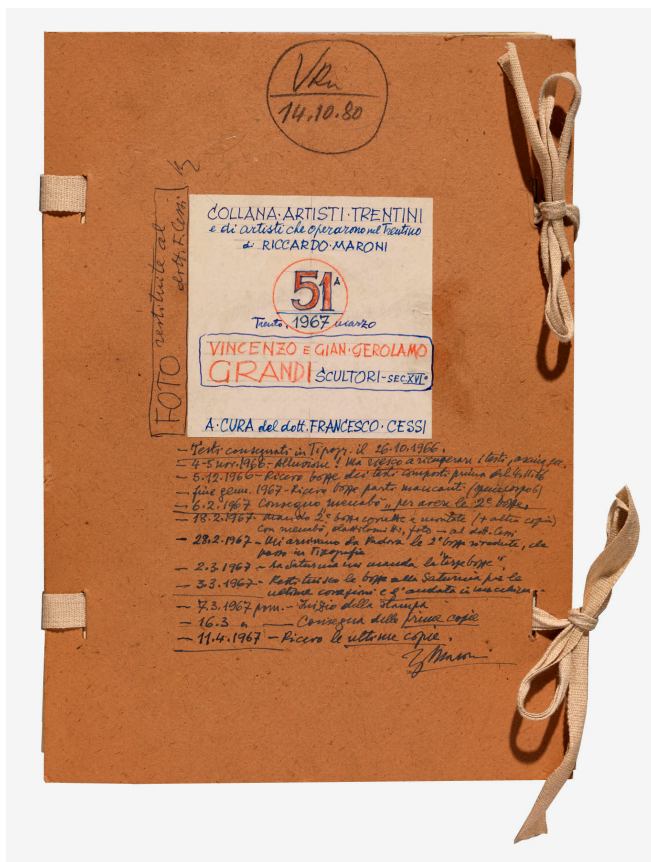 VRu
14.10.80
FOTO restituite al
dott. F. Cessi
COLLANA·ARTISTI·TRENTINI
e di artisti che operarono nel Trentino
di RICCARDO·MARONI
51ª
Trento, 1967 marzo
VINCENZO E GIAN·GEROLAMO
GRANDI SCULTORI-SEC.XVI°
A·CURA del dott. FRANCESCO·CESSI
- Testi consegnati in Tipogr. il 26.10.1966.
- 4-5 nov. 1966 - Alluvione! Ma riesco a ricuperare i testi,
- 5.12.1966 - Ricevo bozze dei testi composti prima del
- fine genn. 1967 - Ricevo bozze parti mancanti
- 6.2.1967 Consegno menabò „ per avere le 2e bozze.
- 18.2.1967 - mando 2e bozze corrette e (+ altra copia)
con menabò, foto - al dott. Cessi
- 28.2.1967 - Mi arrivano da Padova le 2e bozze rivedute, che
passo in Tipografia
- 2.3.1967 - La Saturnia mi manda le "terze bozze".
- 3.3.1967 - Restituisco le bozze alla Saturnia per le
ultime correzioni e l'andata in macchina.
- 7.3.1967 pom. - Inizio della stampa
- 16.3 Consegna delle prime copie
- 11.4.1967 - Ricevo le ultime copie.
Maroni